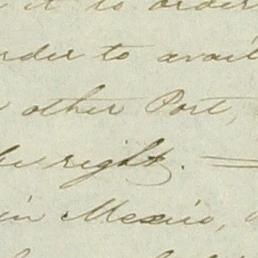 it to order
order to avail
other Port,
right. —
in Mexico,